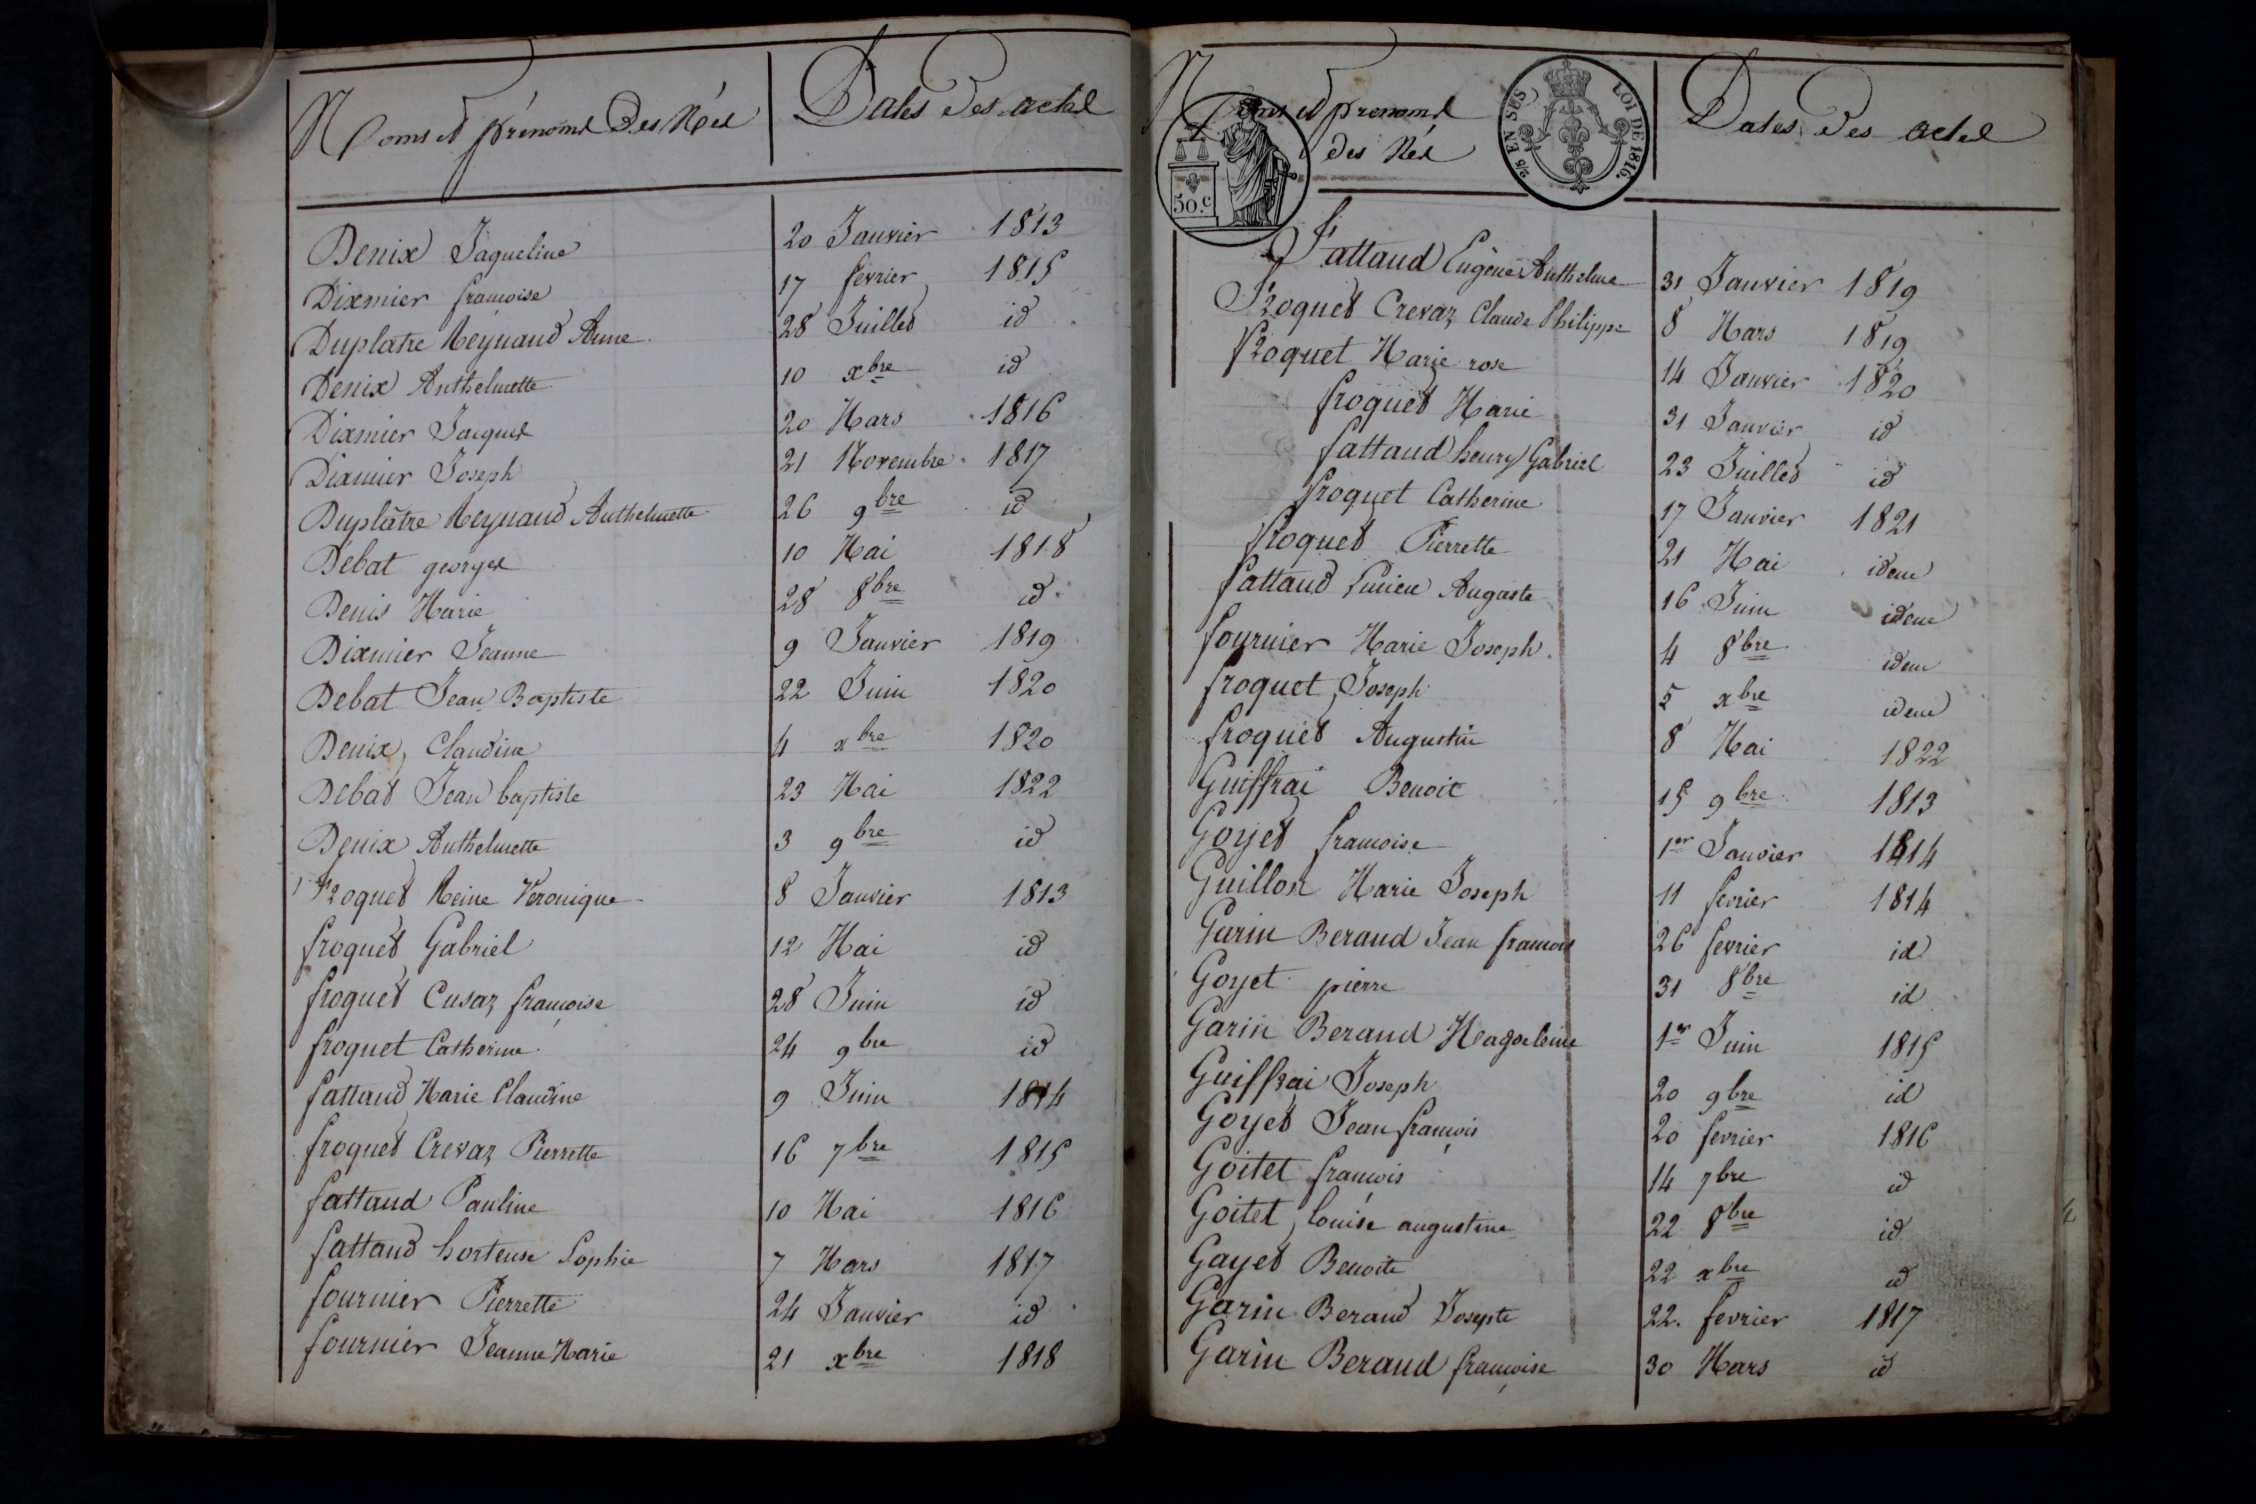 Noms et prénoms Des Nés Dates Des actes
Denix Jaqueline 20 Janvier 1813
Dixmier francoise 17 fevrier 1815
Duplatre Reynaud Anne 28 Juillet id
Denix Anthelmette 10 xbre id
Dixmier Jacques 20 Mars 1816
Dixmier Joseph 21 Novembre 1817
Duplâtre Reynaud Anthelmette 26 9bre id
Debat georges 10 Mai 1818
Denis Marie 28 8bre id
Dixmier Jeanne 9 Janvier 1819
Debat Jean Baptiste 22 Juin 1820
Denix Claudine 4 xbre 1820
Debat Jean baptiste 23 Mai 1822
Denix Anthelmette 3 9bre id
Froquet Reine Veronique 8 Janvier 1813
froquet Gabriel 12 Mai id
froquet Cusaz françoise 28 Juin id
froquet Catherine 24 9bre id
fattaud Marie Claudine 9 Juin 1814
froquet Crevaz Pierrette 16 7bre 1815
fattaud Pauline 10 Mai 1816
fattaud hortense Sophie 7 Mars 1817
fournier Pierrette 24 Janvier id
fournier Jeanne Marie 21 xbre 1818
Noms et prenoms
des Nés Dates Des actes
50.c
2/5 EN SUS LOI DE 1816.
Fattaud Eugène Anthelme 31 Janvier 1819
Froquet Crevaz Claude Philippe 8 Mars 1819
froquet Marie rose 14 Janvier 1820
froquet Marie 31 Janvier id
fattaud henry Gabriel 23 Juillet id
froquet Catherine 17 Janvier 1821
froquet Pierrette 21 Mai idem
fattaud Lucien Auguste 16 Juin idem
fournier Marie Joseph 4 8bre idem
froquet Joseph 5 xbre idem
froquet Augustin 8 Mai 1822
Guiffrai Benoit 15 9bre 1813
Goyet francoise 1er Janvier 1814
Guillon Marie Joseph 11 fevrier 1814
Garin Beraud Jean francois 26 fevrier id
Goyet pierre 31 8bre id
Garin Beraud Magdeleine 1er Juin 1815
Guiffrai Joseph 20 9bre id
Goyet Jean françois 20 fevrier 1816
Goitet francois 14 7bre id
Goitet louise augustine 22 8bre id
Gayet Benoite 22 xbre id
Garin Beraud Josepte 22. fevrier 1817
Garin Beraud françoise 30 Mars id